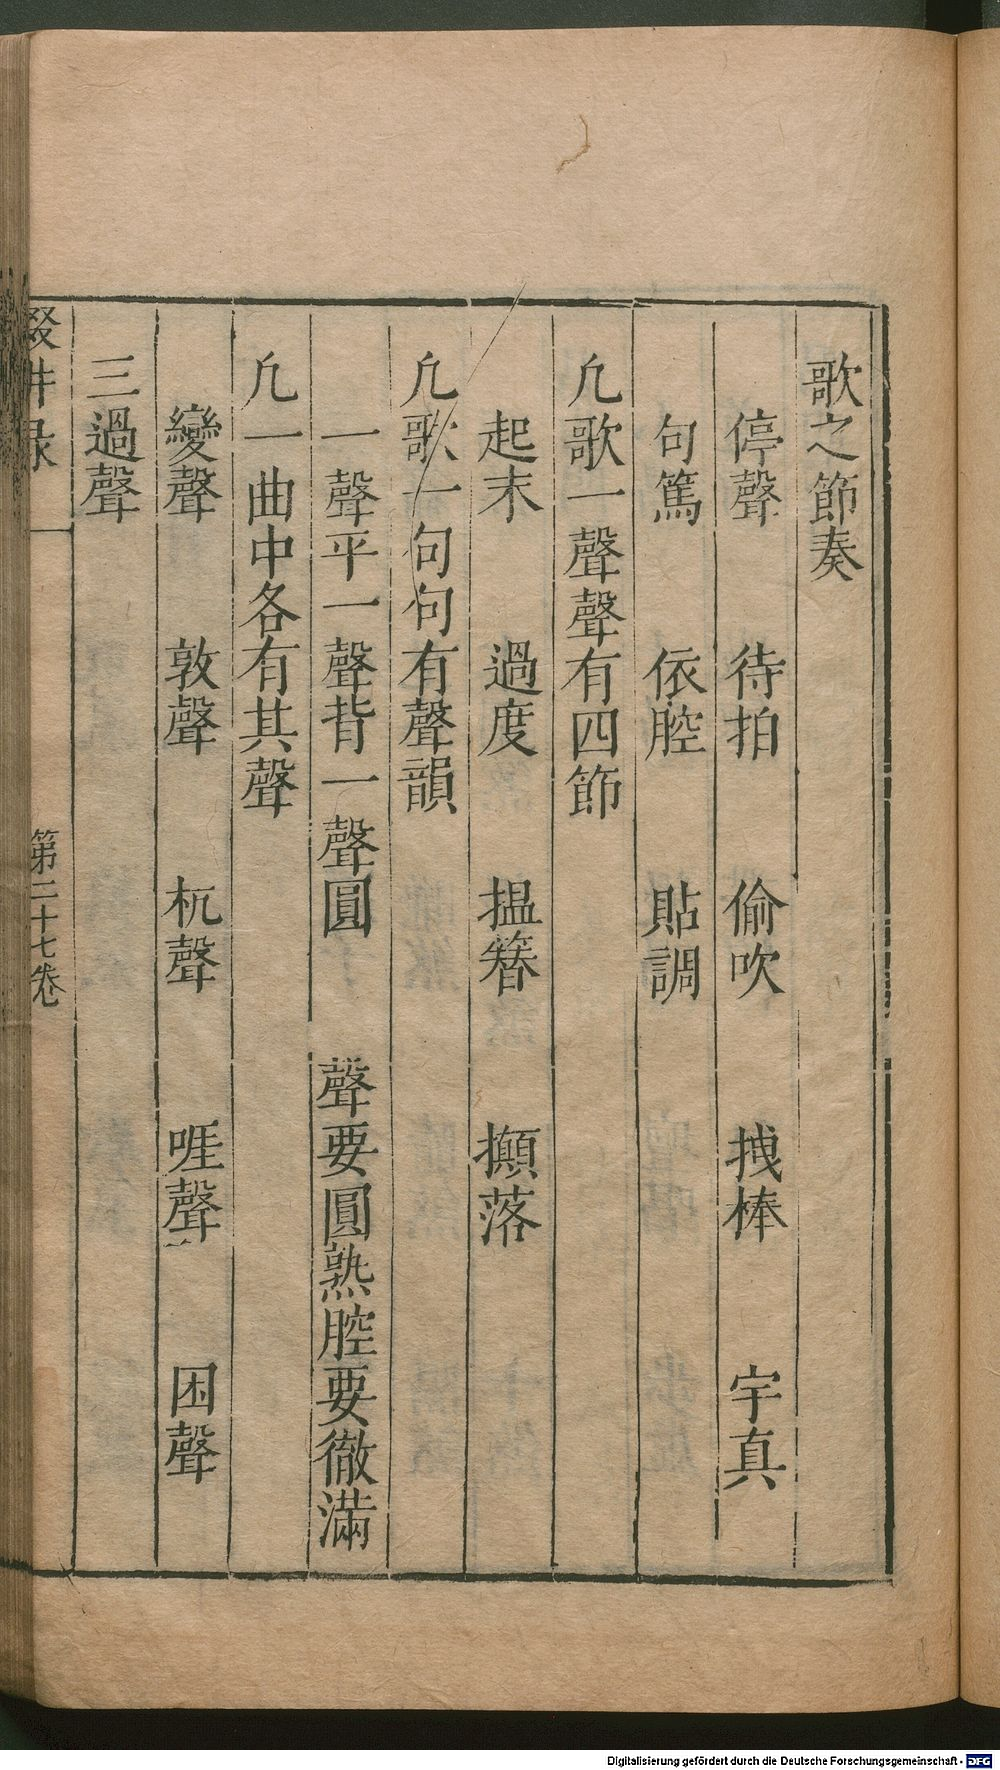 歌之節奏
停聲 待拍 偷吹 拽棒 字真
句篤 依腔 貼調
凢歌一聲聲有四節
起末 過度 搵簪 攧落
凢歌一句句有聲韻
一聲平一聲背一聲圓 聲要圓熟腔要徹滿
凢一曲中各有其聲
變聲 敦聲 杌聲 啀聲 困聲
三過聲
第二十七卷
Digitalisierung gefördert durch die Deutsche Forschungsgemeinschaft - DFG